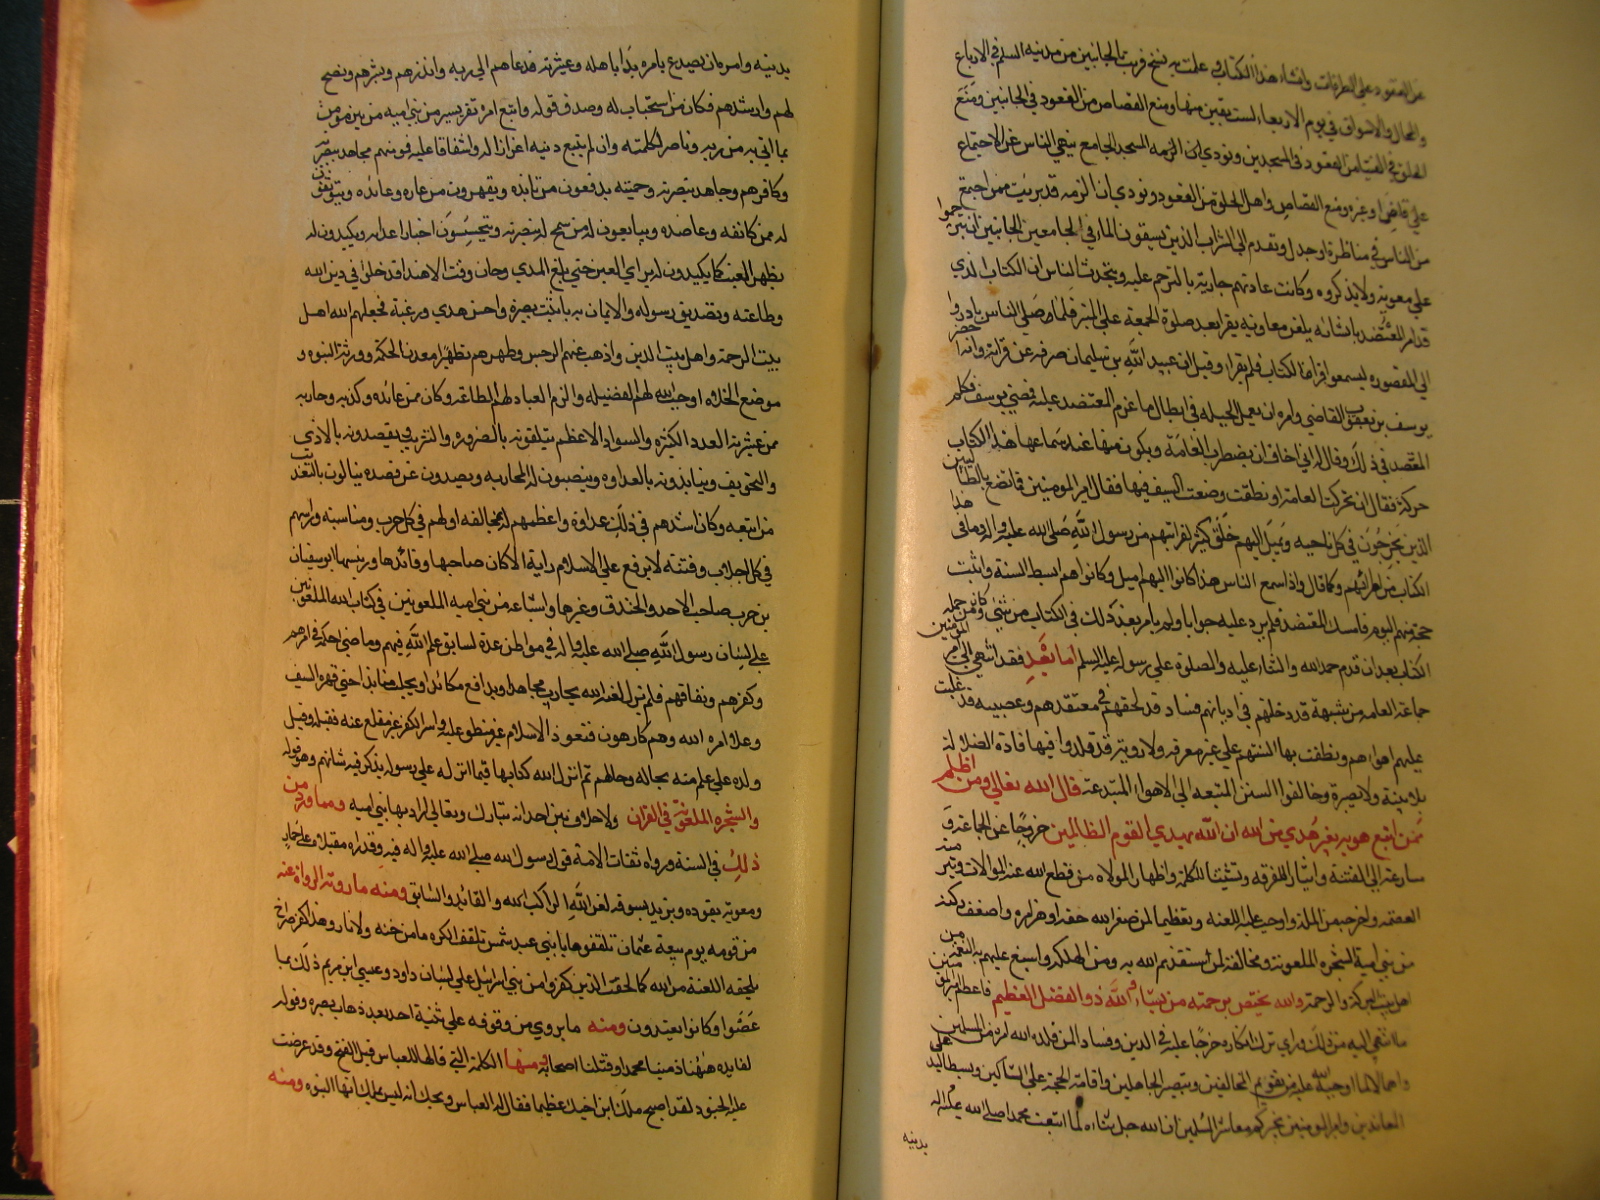 عن القعود علي الطرقات وانشاء هذا الكتاب و علمت به نسخ قريت بالجانبين من مدينه السلم في الارباع
والمحال والاسواق في يوم الاربعاء لست بقين منها ومنع القصاص من القعود في الجانبين ومنع
الحلق في الفتيا من القعود في المسجدين ونودي ان المسجد الجامع ينهي الناس عن الاجتماع
علي قاص او غيره ومنع القصاص واهل الحلق من القعود ونودي ان الذمه قد بريت ممن اجتمع
من الناس في مناظرة او جدل وتقدم الي الشراب الذين يسقون الماء في الجامعين الجانبين ان يترحموا
علي معوية ولا يذكروه وكانت عادتهم جارية بالترحم عليه وتحدث الناس ان الكتاب الذي
قد امر المعتضد بانشائه بلعن معاويه يقرا بعد صلوة الجمعة علي المنبر فلما صلي الناس بادروا
الي المقصوره ليسمعوا قراة الكتاب فلم يقرا وقيل ان عبيد الله بن سليمان صرفه عن قراته وانه احضر
يوسف بن يعقوب القاضي وامره ان يعمل الحيله في ابطال ما عزم المعتضد عليه فمضي يوسف فكلم
المعتضد في ذلك وقال له اني اخاف ان يضطرب العامة ويكون منها عند سماعها هذا الكتاب
حركة فقال ان تحركت العامة او نطقت وضعت السيف فيها فقال يا امير المومنين فما تصنع بالطالبين
الذين يخرجون في كل ناحيه ويميل اليهم خلق كثير لقرابتهم من رسول الله صلي الله عليه واله وما في هذا
الكتاب من اطرائهم وكما قال واذا سمع الناس هذا كانوا اليهم اميل وكانوا هم ابسط السنة واثبت
حجة منهم اليوم فامسك المعتضد فلم يرد عليه جوابا ولم يامر بعد ذلك في الكتاب من شئ وكان من جمله
الكتاب بعد ان قدم حمد الله والثناء عليه والصلوة علي رسوله عليه السلم اما بعد فقد انتهي الي امير المومنين
جماعة العامه من شبهة قد دخلتهم في اديانهم فساد قد لحقهم في معتقدهم وعصبيه قد غلبت
عليهم اهواهم ونطقت بها السنتهم علي غير معرفه ولا روية قد قلدوا فيها قادة الضلالة
بلا بينة ولا بصيرة وخالفوا السنن المتبعه الي الاهواء المبتدعة قال الله تعالي ومن اظلم
ممن اتبع هويه بغير هدي من الله ان الله لا يهدي القوم الظالمين خروجا عن الجماعة و
مسارعة الي الفتنة وايثارا للفرقه وتشتيتا للكلمة واظهار الموالاه من قطع الله عنه الموالات وبتر منه
العصمه واخرجه من الملة واوجب عليه اللعنه وتعظيما لمن صغر الله حقه واوهن امره واضعف ركنه
من بني امية الشجره الملعونة ومخالفة لمن استنقذهم الله به من الهلكه واسبغ عليهم به النعمه من
اهل بيت البركة والرحمة والله يختص برحمته من يشاء والله ذو الفضل العظيم فاعظم امير المومنين
ما انتهي اليه من ذلك وراي ترك انكاره حرجا عليه في الدين وفسادا لمن قلده الله امره من المسلمين
واهمالا لما اوجبه الله عليه من تقويم المخالفين وتبصير الجاهلين واقامة الحجة علي الشاكين وبسط اليد علي
المعاندين وامير المومنين يخبركم معاشر المسلمين ان الله جل ثناءه لما ابتعث محمدا صلي الله عليه واله
بدينه
بدينه وامره ان يصدع بامره بدا باهله وعشيرته فدعاهم الي ربه وانذرهم وبشرهم ونصح
لهم وارشدهم فكان من استجاب له وصدق قوله واتبع امره نفر يسير من بني ابيه من بين مومن
بما اتي به من ربه وناصر لكلمته وان لم يتبع دينه اعزازا له واشفاقا عليه فمومنهم مجاهد ببصيرته
وكافرهم مجاهد بنصرته وحميته يدفعون من نابذه ويقهرون من عاره وعانده ويتوثقون
له ممن كانفه وعاضده ويبايعون له من سمح له بنصرته ويتجسسون اخبار اعدائه ويكيدون له
بظهر الغيب كما يكيدون له براي العين حتي بلغ المدي وحان وقت الاهتدا فدخلوا في دين الله
وطاعته وتصديق رسوله والايمان به باثبت بصيرة واحسن هدي ورغبة فجعلهم الله اهل
بيت الرحمة واهل بيت الدين واذهب عنهم الرجس وطهرهم تطهيرا معدن الحكمة وورثة النبوه و
موضع الخلافه اوجب الله لهم الفضيله والزم العباد لهم الطاعة وكان ممن عانده وكذبه وحاربه
من عشيرته العدد الكثير والسواد الاعظم يتلقونه بالضروره والتثريب يقصدونه بالاذي
والتخويف وينابذونه بالعداوه وينصبون له المحاربه ويصدون عن قصده ينالون بالتعذيب
من اتبعه وكان اشدهم في ذلك عداوة واعظمهم له مخالفه اولهم في كل حرب ومناسبه وراسهم
في كل اجلاب وفتنة لا يرفع علي الاسلام راية الا كان صاحبها وقائدها ورئيسها ابو سفيان
بن حرب صاحب الاحد والخندق وغيرها واشياعه من بني اميه الملعونين في كتاب الله الملعونين
علي لسان رسول الله صلي الله عليه واله في مواطن عدة لسابق علم الله فيهم وماضي حكمه في امرهم
وكفرهم ونفاقهم فلم يزل لعنه الله يحارب مجاهدا ويدافع مكائدا ويجلب منابذا حتي قهره السيف
وعلا امره الله وهم كارهون فتعوذ بالاسلام غير منطو عليه واسر الكفر غير مقلع عنه فقبله وقبل
ولده علي علم منه بحاله وحالهم ثم انزل الله كتابها فيما انزله علي رسوله يذكر فيه شانهم وهو قوله
والشجره الملعونة في القران ولا خلاف بين احد انه تبارك وتعالي اراد بها بني اميه ومما ورد من
ذلك في السنة ورواه ثقات الامة قول رسول الله صلي الله عليه واله فيه وقد راه مقبلا علي حمار
ومعوية يقوده ويزيد يسوقه لعن الله الراكب والقائد والسابق ومنه ما روته الرواة عنه
من قومه يوم بيعة عثمان تلقفوها يا بني عبد شمس تلقف الكره ما من جنه ولا نار وهذا كفر صراح
يلحقه اللعنة من الله كما لحقت الذين كفروا من بني اسرائيل علي لسان داود وعيسي ابن مريم ذلك بما
عصوا وكانوا يعتدون ومنه ما يروي من وقوفه علي ثنية احد بعد ذهاب بصره وقوله
لقايده ههنا ذببنا محمدا وقتلنا اصحابه ومنها الكلمة التي قالها للعباس قبل الفتح وقد عرضت
عليه الجنود لقد اصبح ملك ابن اخيك عظيما فقال له العباس ويحك انه ليس بملك انها النبوه ومنه